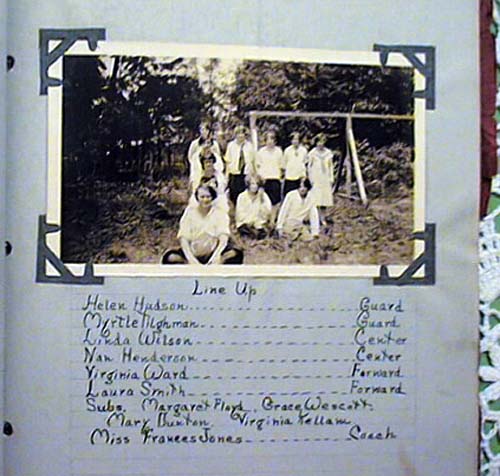 Line Up
Helen Hudson Guard
Myrtle Tilghman Guard
Linda Wilson Center
Nan Henderson Center
Virginia Ward Forward
Laura Smith Forward
Subs. Margaret Floyd, Grace Wescott,
Mary Dunton, Virginia Kellam
Miss Frances Jones Coach